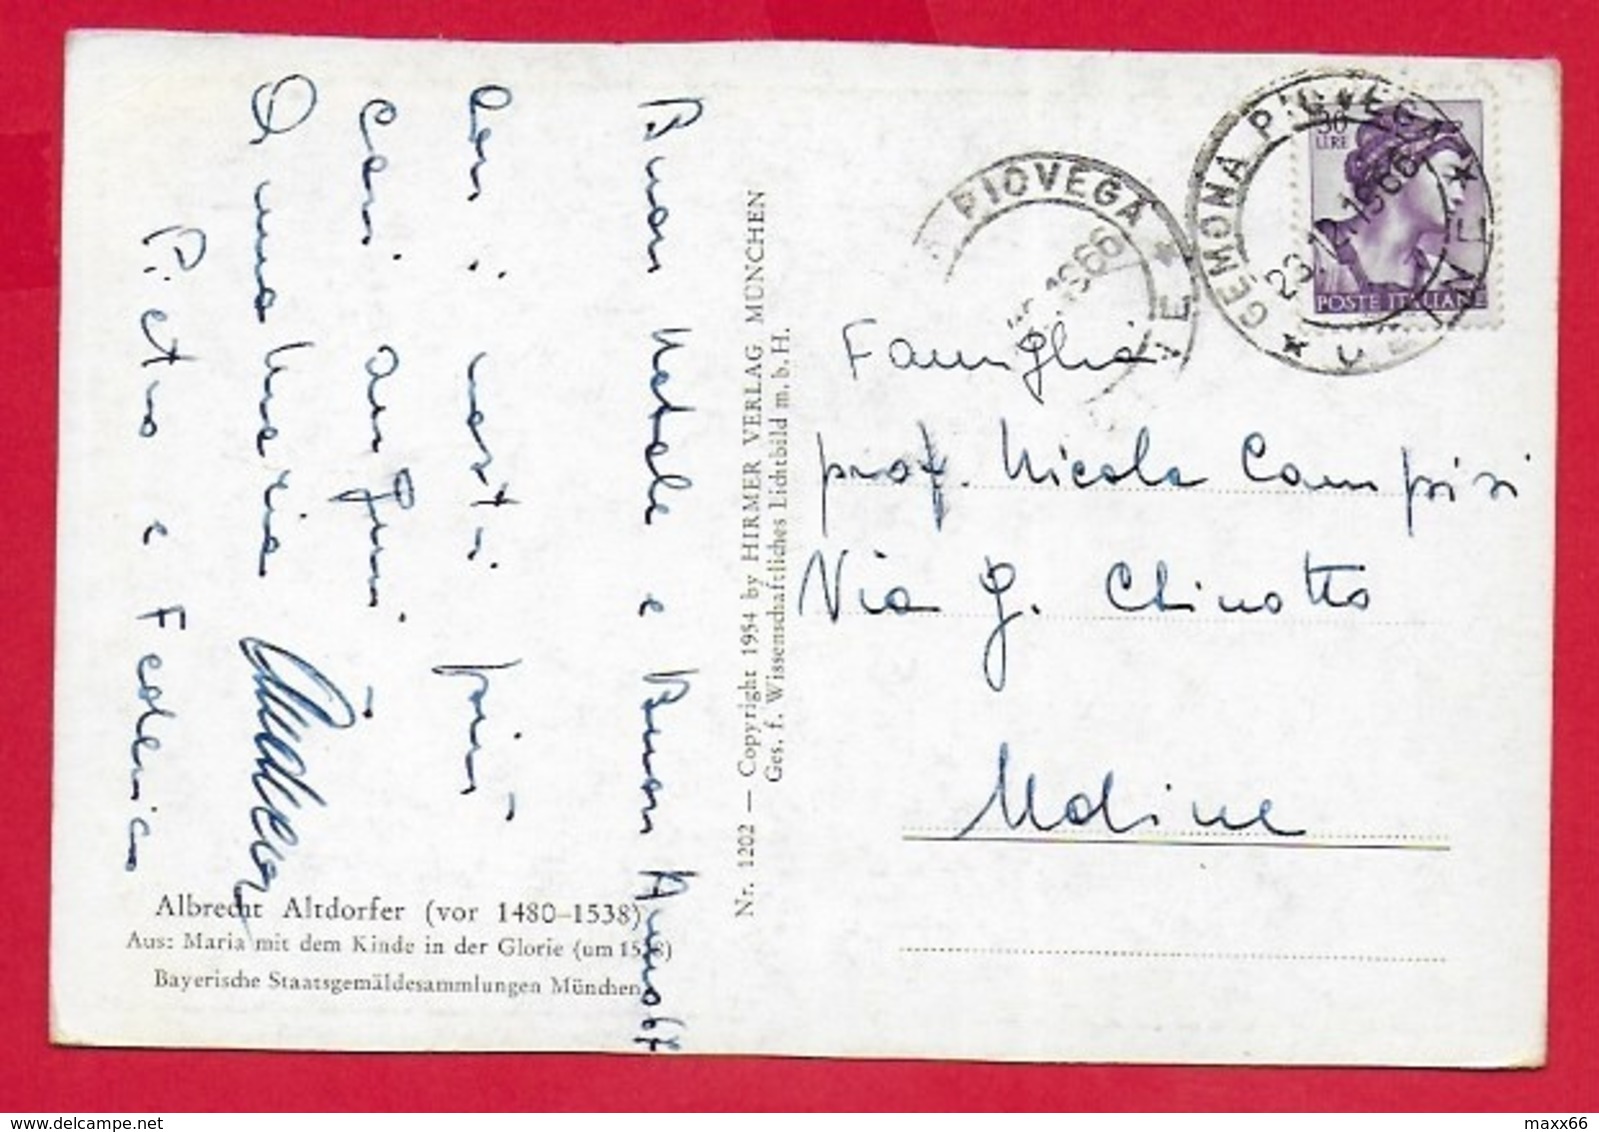 Buon Natale e Buon Anno 67
con i vostri più
cari auguri
Pietro e Federica
Albrecht Altdorfer (vor 1480–1538)
Aus: Maria mit dem Kinde in der Glorie (um 1528)
Bayerische Staatsgemäldesammlungen München
Nr. 1202 — Copyright 1954 by HIRMER VERLAG MÜNCHEN
Ges. f. Wissenschaftliches Lichtbild m. b. H.
PIOVEGA * 1966
* GEMONA PIOVEGA * UDINE
23.12.1966
30 LIRE
POSTE ITALIANE
Famiglia
prof. Nicola Campisi
Via G. Chinotto
Udine
maxx66